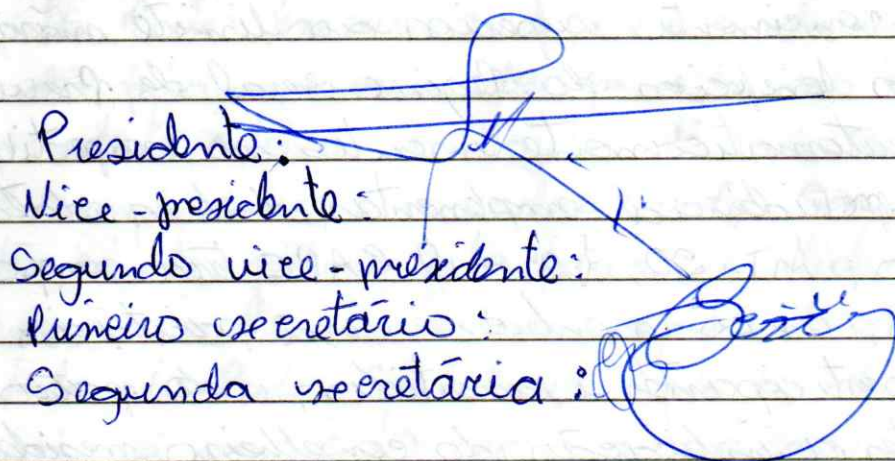 Presidente:
Vice-presidente:
Segundo vice-presidente:
Primeiro secretário:
Segunda secretária: